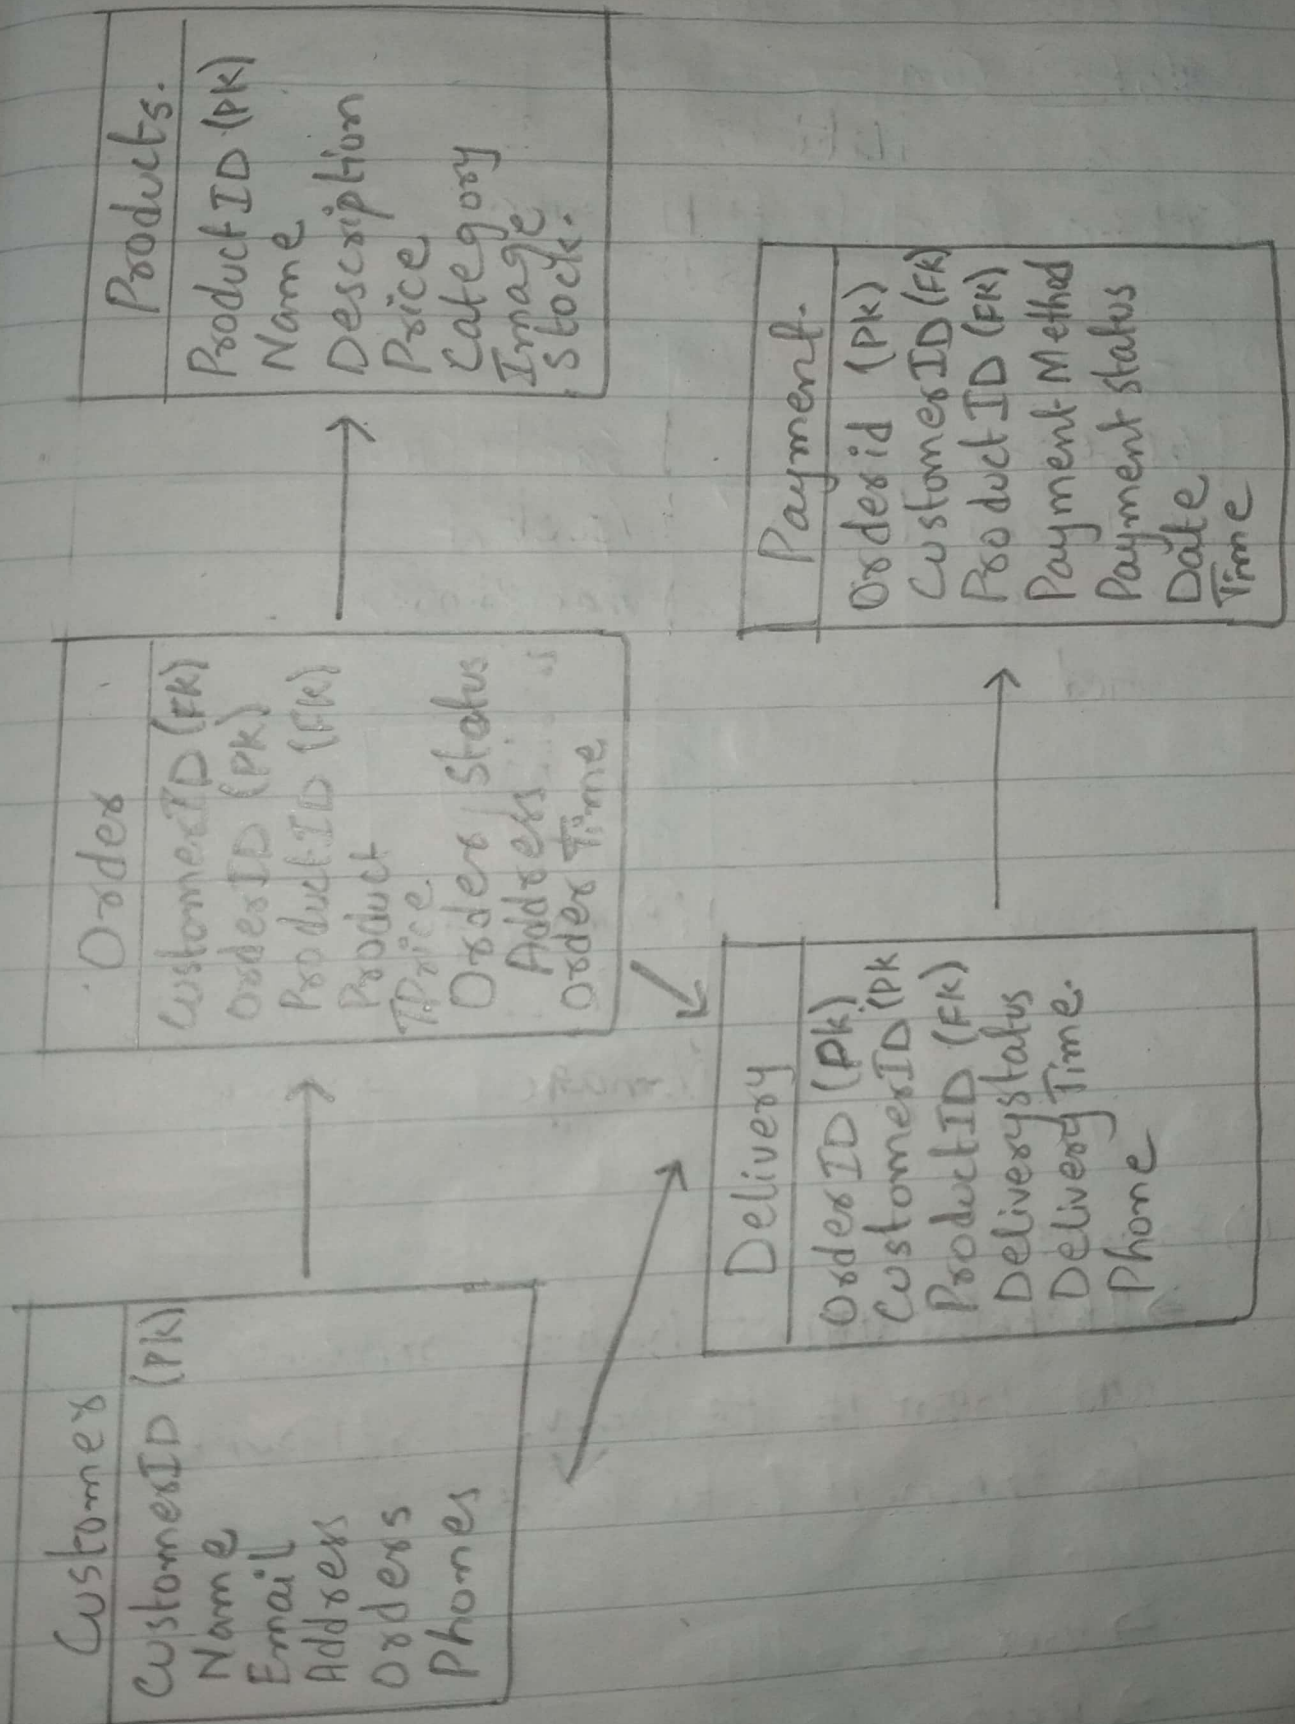 Customer
CustomerID (PK)
Name
Email
Address
Orders
Phones
Order
CustomerID (FK)
OrderID (PK)
ProductID (FK)
Product
T.Price
Order Status
Address
Order Time
Products.
ProductID (PK)
Name
Description
Price
Category
Image
Stock.
Delivery
OrderID (PK)
CustomerID (PK
ProductID (FK)
DeliveryStatus
Delivery Time.
Phone
Payment.
Orderid (PK)
CustomerID (FK)
ProductID (FK)
Payment Method
Payment status
Date
Time